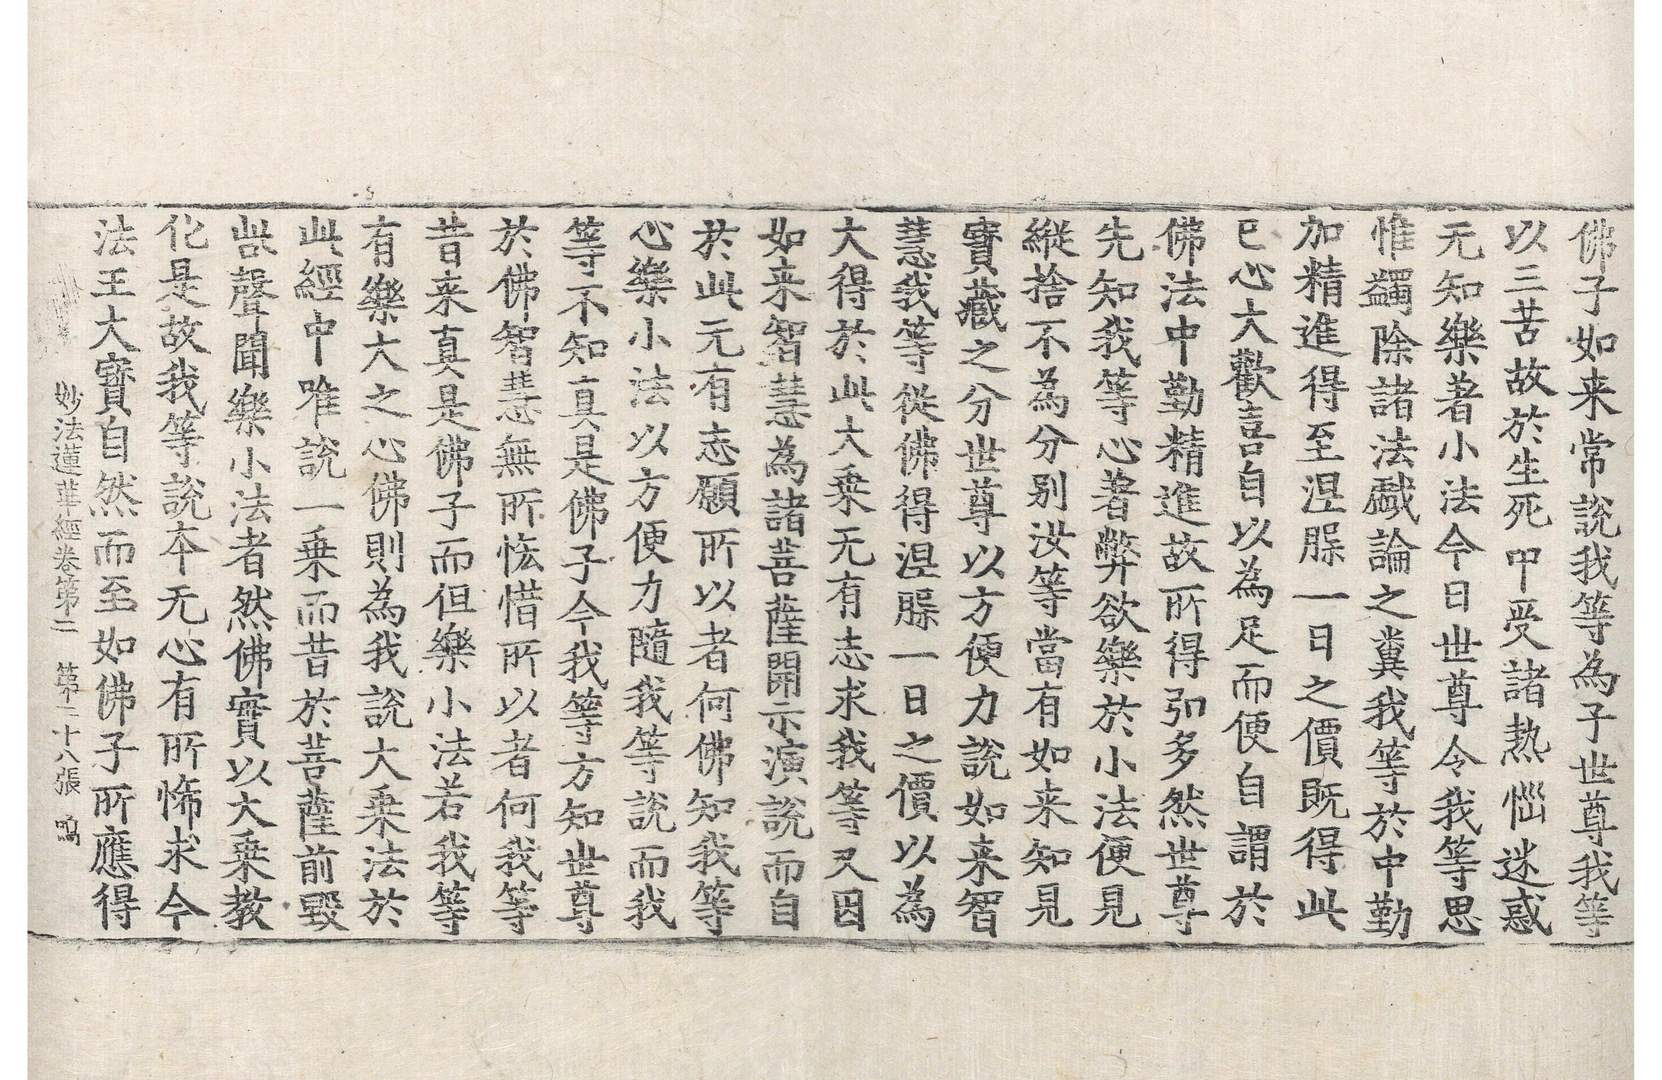 佛子如来常説我等為子世尊我等
以三苦故於生死中受諸熱惱迷惑
无知樂著小法今日世尊令我等思
惟蠲除諸法戲論之糞我等於中勤
加精進得至涅槃一日之價既得此
已心大歡喜自以為足而便自謂於
佛法中勤精進故所得弘多然世尊
先知我等心著弊欲樂於小法便見
縱捨不為分別汝等當有如来知見
寶藏之分世尊以方便力說如来智
慧我等從佛得涅槃一日之價以為
大得於此大乗无有志求我等又因
如来智慧為諸菩薩開示演說而自
於此无有志願所以者何佛知我等
心樂小法以方便力隨我等說而我
等不知真是佛子今我等方知世尊
於佛智慧無所恡惜所以者何我等
昔来真是佛子而但樂小法若我等
有樂大之心佛則為我說大乗法於
此經中唯說一乗而昔於菩薩前毀
呰聲聞樂小法者然佛實以大乗教
化是故我等說本无心有所悕求今
法王大寶自然而至如佛子所應得
妙法蓮華經卷第二 第二十八張 鳴